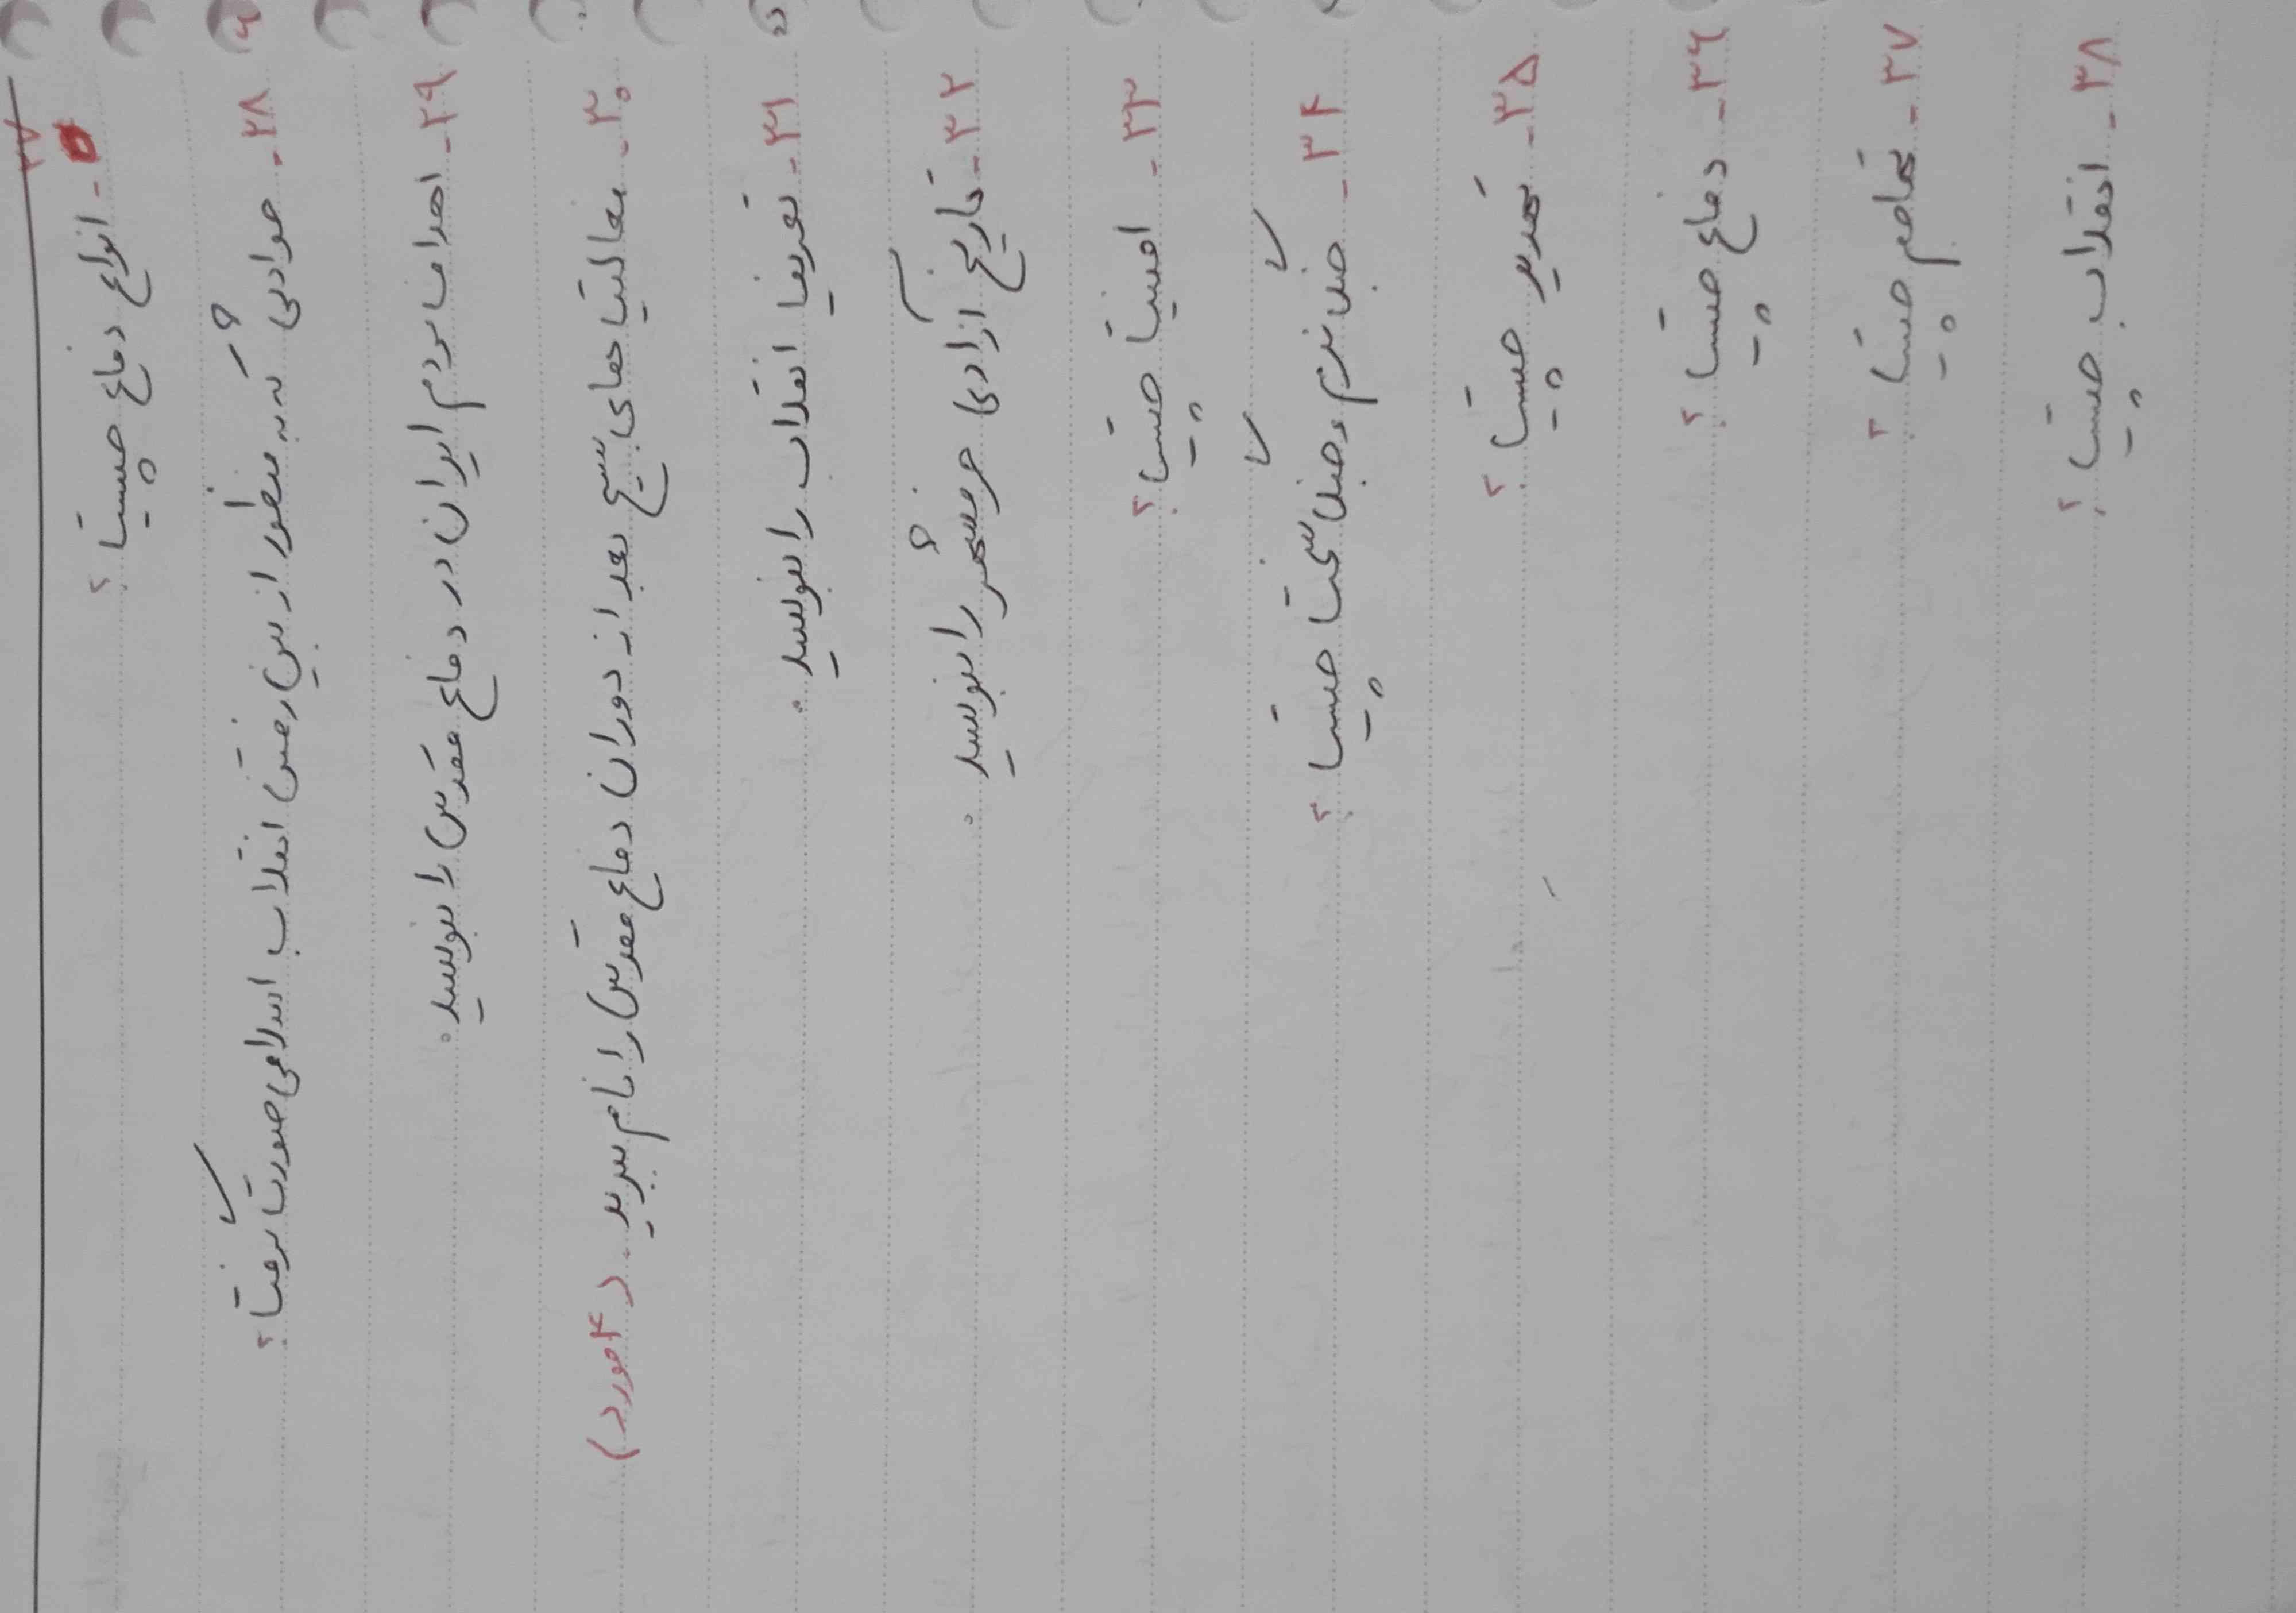 ۲۷- انواع دفاع چیست؟
۲۸- حوادثی که به منظور از بین رفتن انقلاب اسلامی صورت گرفت؟
۲۹- اهداف مردم ایران در دفاع مقدس را بنویسید.
۳۰- فعالیت های بسیج بعد از دوران دفاع مقدس را نام ببرید. (۴ مورد)
۳۱- تعریف انقلاب را بنویسید.
۳۲- تاریخ آزادی خرمشهر را بنویسید.
۳۳- امنیت چیست؟
۳۴- جنگ نرم و جنگ سخت چیست؟
۳۵- تهدید چیست؟
۳۶- دفاع چیست؟
۳۷- تهاجم چیست؟
۳۸- انقلاب چیست؟